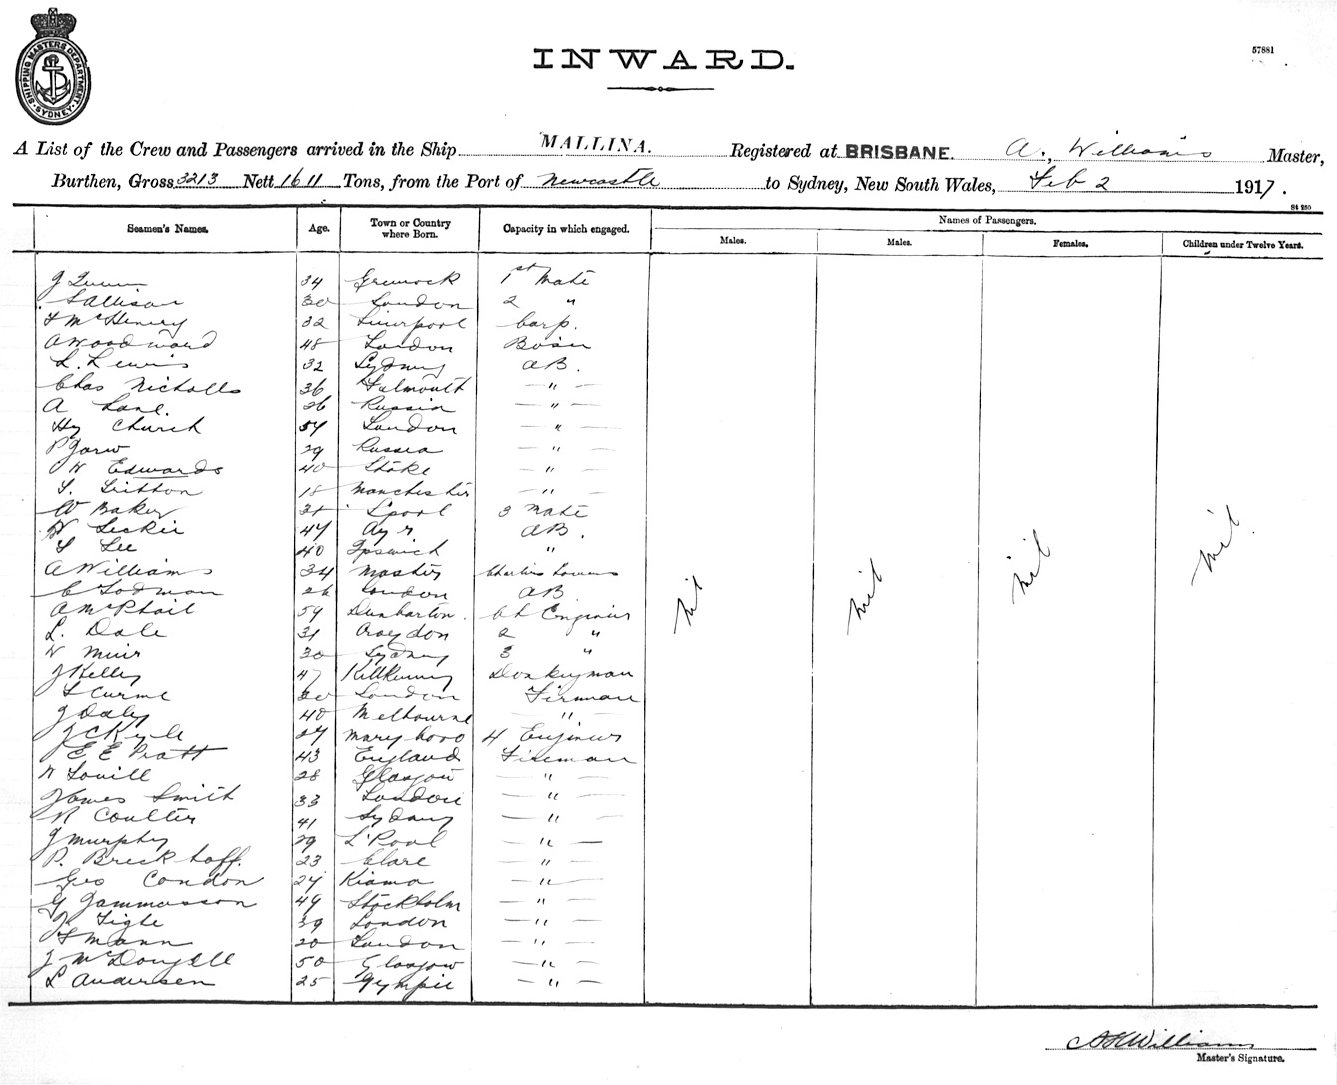 SHIPPING MASTERS DEPARTMENT. SYDNEY
INWARD.
57881
A List of the Crew and Passengers arrived in the Ship MALLINA. Registered at BRISBANE. A. Williams Master,
Burthen, Gross 3213 Nett 1611 Tons, from the Port of Newcastle to Sydney, New South Wales, Feb 2 1917.
St 250
Seamen's Names. Age. Town or Country where Born. Capacity in which engaged. Names of Passengers.
Males. Males. Females. Children under Twelve Years.
J 34 Greenock 1st Mate
S Allison 30 London 2 "
F McHenry 32 Liverpool Carp.
A Woodward 48 London Bosun
L. Lewis 32 Sydney AB.
Chas Nicholls 36 Falmouth — " —
A Lane. 26 Russia — " —
Hy Church 54 London — " —
P 29 Russia — " —
W Edwards 40 Stoke — " —
18 Manchester — " —
W Baker L'pool 3 Mate
W Leckie 47 Ayr. AB.
S Lee 40 Ipswich "
A Williams 34 Master
C 26 London AB
A McPhail 59 Dunbarton. Ch Engineer
L. Dale 31 Croydon 2 "
W Muir 30 Sydney 3 "
J Kelly 47 Kilkenny Donkeyman
S Curme London Fireman
J Daly 40 Melbourne "
J C Kyle 27 Maryboro 4 Engineer
E E Pratt 43 England Fireman
W Lovill 28 Glasgow — " —
James Smith 33 London — " —
R Coulter 41 Sydney — " —
J Murphy 29 L'Pool — " —
P. Breckhoff. 23 Clare — " —
Geo Condon 27 Kiama — " —
G Gammasson 49 Stockholm — " —
Tighe 39 London — " —
F Mann 20 London — " —
J McDougall 50 Glasgow — " —
L Andersen 25 Gympie — " —
nil nil nil nil
A Williams
Master's Signature.